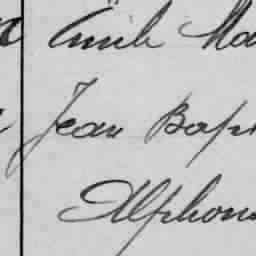 Émile Ma
Jean Bapt
Alphons